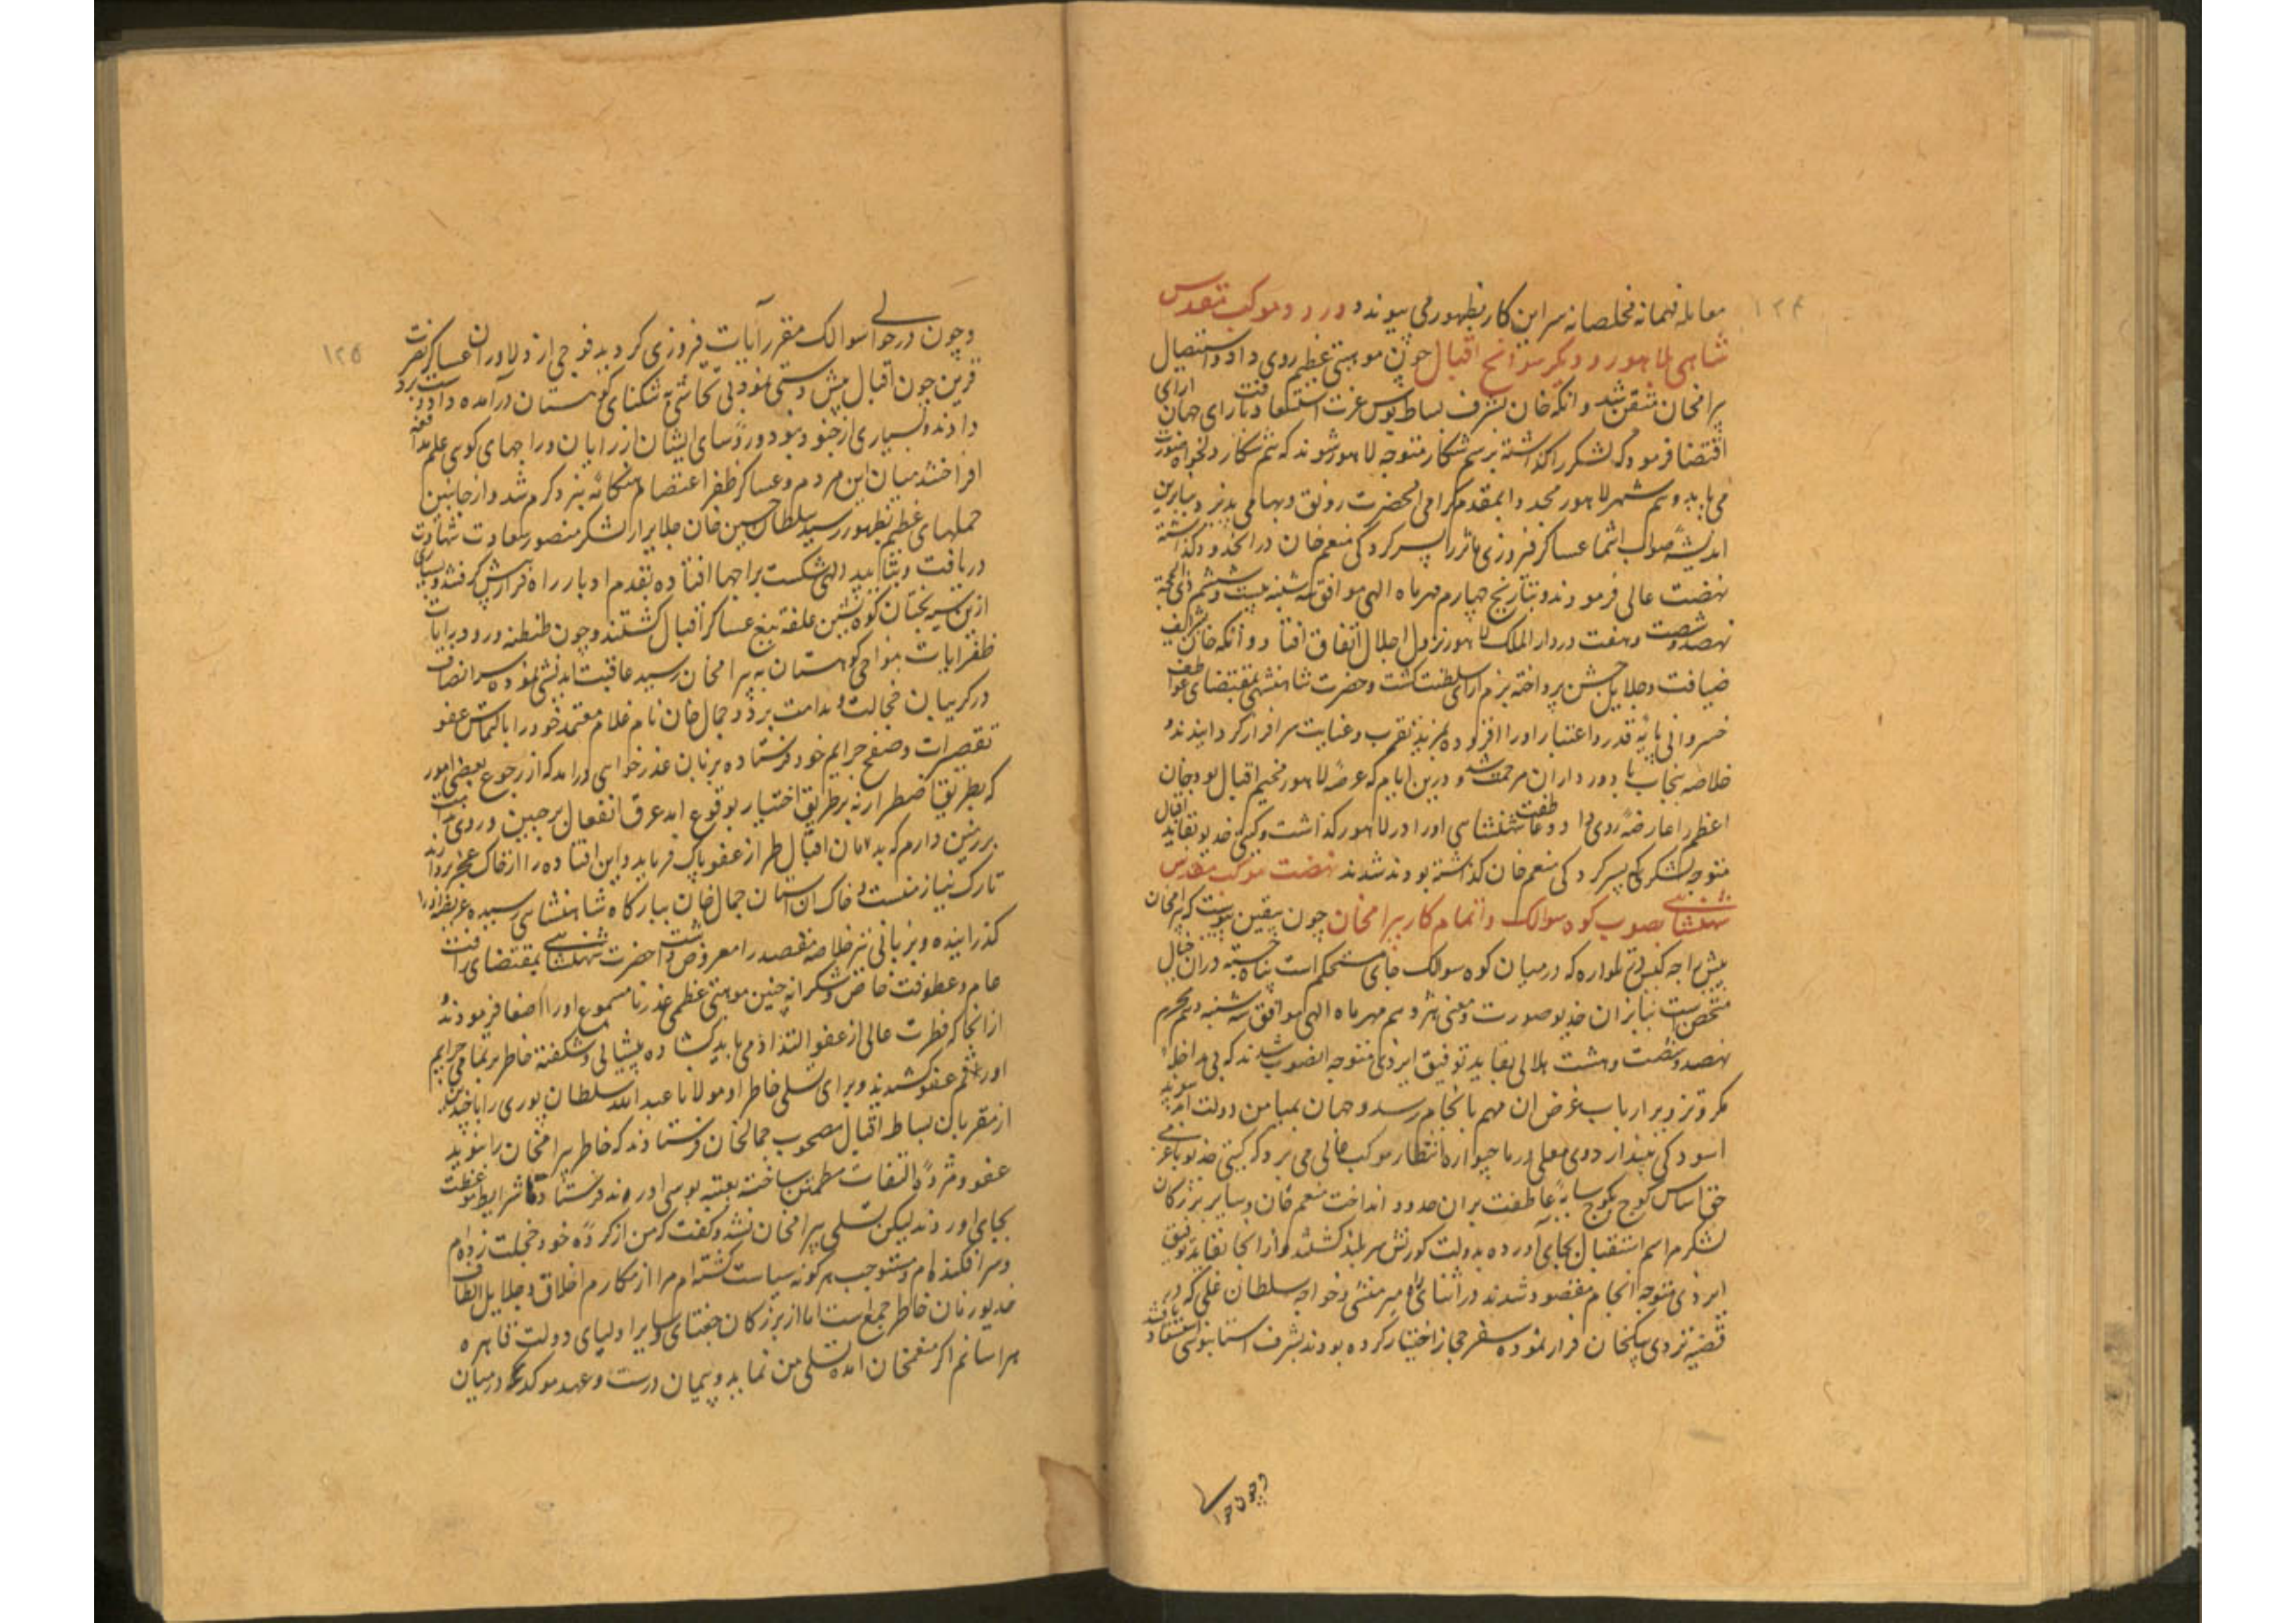 ۱۲۴
معامله فهمانه مخلصانه سر این کار بظهور می پیوندد ورود موکب مقدس
شاهی بلاهور و دیکر سوانح اقبال چون موهبتی عظیم روی داد و استیصال
پیرامخان متیقن شد و آنکه خان بشرف بساط بوس عزت استسعاد یافت رای جهان آرای
اقتضا فرمود که لشکر را گذاشته برسم شکار متوجه لاهور شوند که هم شکار دلخواه صورت
می یابد و هم شهر لاهور مجددا بمقدم گرامی انحضرت رونق و بها می پذیرد و بنابرین
اندیشه صواب انتما عساکر فیروزی ماثر را بسرکردکی منعم خان در آنحدود گذاشته
نهضت عالی فرمودند و بتاریخ چهارم مهر ماه الهی موافق سه شنبه بیست و ششم ذی الحجة
نهصد و شصت و هفت در دار الملک لاهور نزول اجلال اتفاق افتاد و آنکه خان
ضیافت و جلایل جشن پرداخته بزم آرای سلطنت گشت و حضرت شاهنشهی بمقتضای عواطف
خسروانی پایه قدر و اعتبار او را افزوده بمزید تقرب و عنایت سرافراز کردانیدند و
خلاصه پنجاب با و برادران مرحمت شد و درین ایام که عرصه لاهور مخیم اقبال بود خان
اعظم را عارضه روی داد و عاطفت شهنشاهی او را در لاهور گذاشت و کیتی خدیو بقاید اقبال
متوجه لشکری که بسرکردکی منعم خان گذاشته بودند شدند نهضت موکب مقدس
شهنشاهی بصوب کوه سوالک و اتمام کار پیرامخان چون بیقین پیوست که پیرامخان
پیش راجه کنیس در تلواره که در میان کوه سوالک جای مستحکم است پناه جسته در ان جبال
متحصن است بنابران خدیو صورت و معنی هژدهم مهر ماه الهی موافق سه شنبه دهم محرم
نهصد و شصت و هشت هلالی بقاید توفیق ایزدی متوجه انصوب شدند که بی مداخله
مکر و تزویر ارباب غرض ان مهم بانجام رسد و جهان بمیامن دولت
اسودگی پیوند اردوی معلی در ماچیواره انتظار موکب عالی می برد که کیتی خدیو
حق اساس کوچ بکوچ سایه عاطفت بران حدود انداخت منعم خان و سایر بزرگان
لشکر مراسم استقبال بجای آورده بدولت کورنش سربلند گشتند و از انجا بقاید توفیق
ایزدی متوجه انجام مقصود شدند در اثنای راه میر منشی و خواجه سلطان علی که در
قضیه تردی بیکخان فرار نموده سفر حجاز اختیار کرده بودند بشرف استانبوسی استسعاد یافتند
وچون حوالی
۱۲۵
وچون در حوالی سوالک مقر رآیات فیروزی کردید فوجی از دلاوران عساکر نصرت
قرین چون اقبال پیش دستی نموده بی تحاشی به تنکنای کوهستان درآمده داد دست برد
دادند و بسیاری از جنود هنود و رؤسای ایشان از رایان و راجهای کوهی علم مدافعه
افراختند میان این مردم و عساکر ظفر اعتصام هنکامه نبرد کرم شد و از جانبین
حملهای عظیم بظهور رسید سلطان حسین خان جلایر از لشکر منصور سعادت شهادت
دریافت و بتایید الهی شکست بر راجها افتاده بقدم ادبار راه فرار پیش گرفتند و بسیاری
ازین سیه بختان کوه نشین علفه تیغ عساکر اقبال گشتند و چون طنطنه ورود رایات
ظفرایات بنواحی کوهستان به پیرامخان رسید عاقبت اندیشی نموده سر انصاف
در کریبان خجالت و ندامت برد و جمال خان نام غلام معتمد خود را بالتماس عفو
تقصیرات و صفح جرایم خود فرستاده بزبان عذرخواهی درآمد که از رجوع بعضی امور
که بطریق اضطرار نه بر طریق اختیار بوقوع امد عرق انفعال بر جبین و روی ندامت
بر زمین دارم که بدامان اقبال طراز عفو پاک فرماید و این افتاده را از خاک عجز بردارند
تارک نیاز منست و خاک ان آستان جمال خان ببارکاه شاهنشاهی رسیده عریضه او را
گذرانیده و بزبانی نیز خلاصه مقصد را معروض داشت حضرت شهنشاهی بمقتضای رافت
عام و عطوفت خاص و شکرانه چنین موهبتی عظمی عذر نامسموع او را اصغا فرمودند و
از انجا که فطرت عالی از عفو التذاذ می یابد بکشاده پیشانی و شکفته خاطر بر تمامی جرایم
او رقم عفو کشیدند و برای تسلی خاطر او مولانا عبد الله سلطان پوری را با چندی
از مقربان بساط اقبال مصحوب جمالخان فرستادند که خاطر پیرامخان را بنوید
عفو و مژده التفات مطمئن ساخته بعتبه بوسی اورند فرستادها شرایط موعظت
بجای اوردند لیکن تسلی پیرامخان نشد و کفت که من از کرده خود خجلت زده ام
و سرافکنده ام و مستوجب هرگونه سیاست کشته ام مرا از مکارم اخلاق و جلایل الطاف
خدیو زمان خاطر جمع است اما از بزرگان چغتای و سایر اولیای دولت قاهره
هراسانم اگر منعمخان امده تسلی من نماید و پیمان درست و عهد موکد درمیان